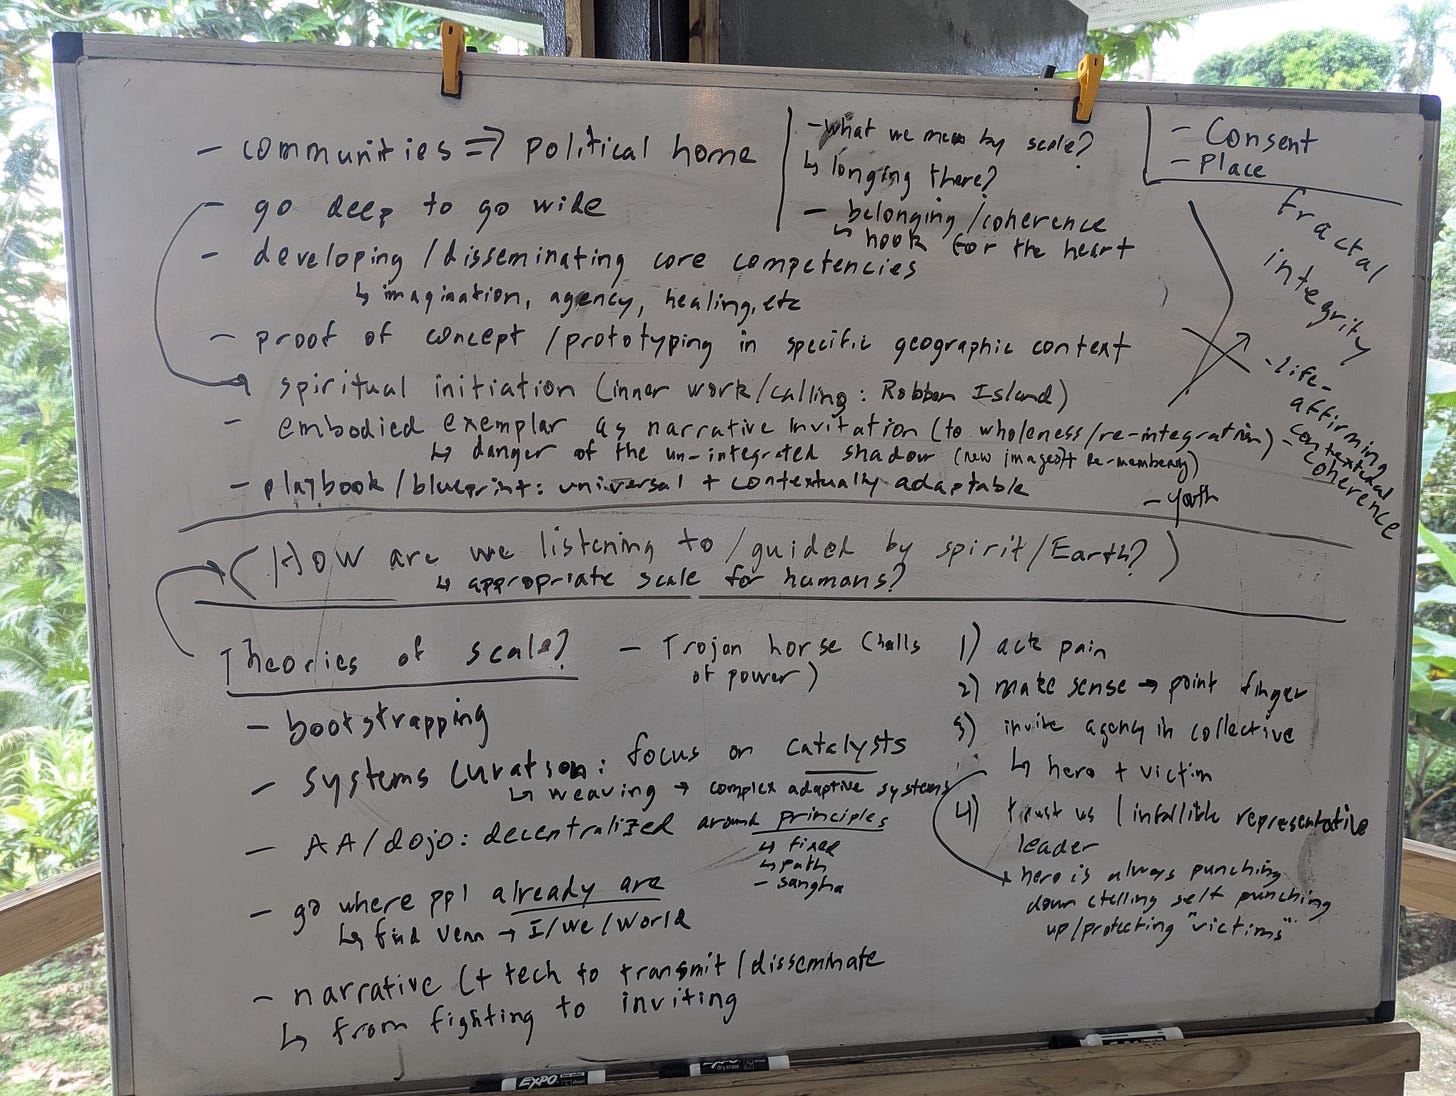 - communities => political home
- go deep to go wide
- developing / disseminating core competencies
↳ imagination, agency, healing, etc
- proof of concept / prototyping in specific geographic context
spiritual initiation (inner work/calling: Robben Island)
- embodied exemplar as narrative invitation (to wholeness/re-integration)
↳ danger of the un-integrated shadow (new images)+ Re-membering)
- playbook/blueprint: universal + contextually adaptable
- what we mean by scale?
↳ longing there?
- belonging/coherence
↳ hook for the heart
- Consent
- Place
Fractal
integrity
- life-
affirming
- contextual
coherence
- youth
(How are we listening to/guided by spirit/Earth?)
↳ appropriate scale for humans?
Theories of scale?
- Trojan horse (halls
of power)
- bootstrapping
- systems curation: focus on catalysts
↳ weaving → complex adaptive systems
- AA/dojo: decentralized around principles
↳ fixed
↳ path
- sangha
- go where ppl already are
↳ find Venn → I/We/World
- narrative (+ tech to transmit/disseminate
↳ from fighting to inviting
1) ack pain
2) make sense → point finger
3) invite agency in collective
↳ hero + victim
4) trust us / infallible representative
leader
hero is always punching
down (telling self punching
up/protecting "victims"
EXPO
dry erase